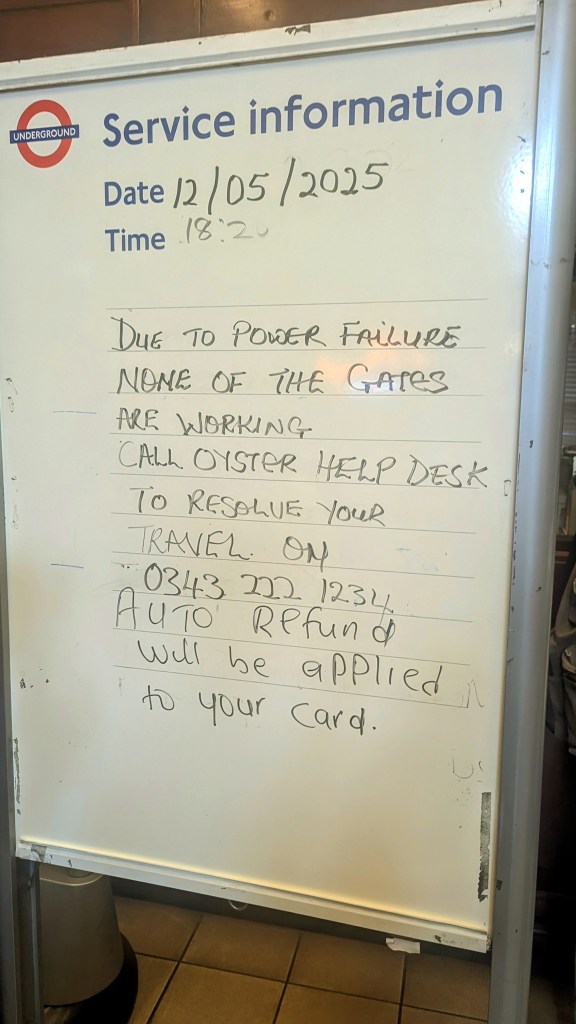 UNDERGROUND
Service information
Date 12/05/2025
Time 18:2
DUE TO POWER FAILURE
NONE OF THE GATES
ARE WORKING
CALL OYSTER HELP DESK
TO RESOLVE YOUR
TRAVEL. ON
0343 222 1234
AUTO Refund
will be applied
to your card.